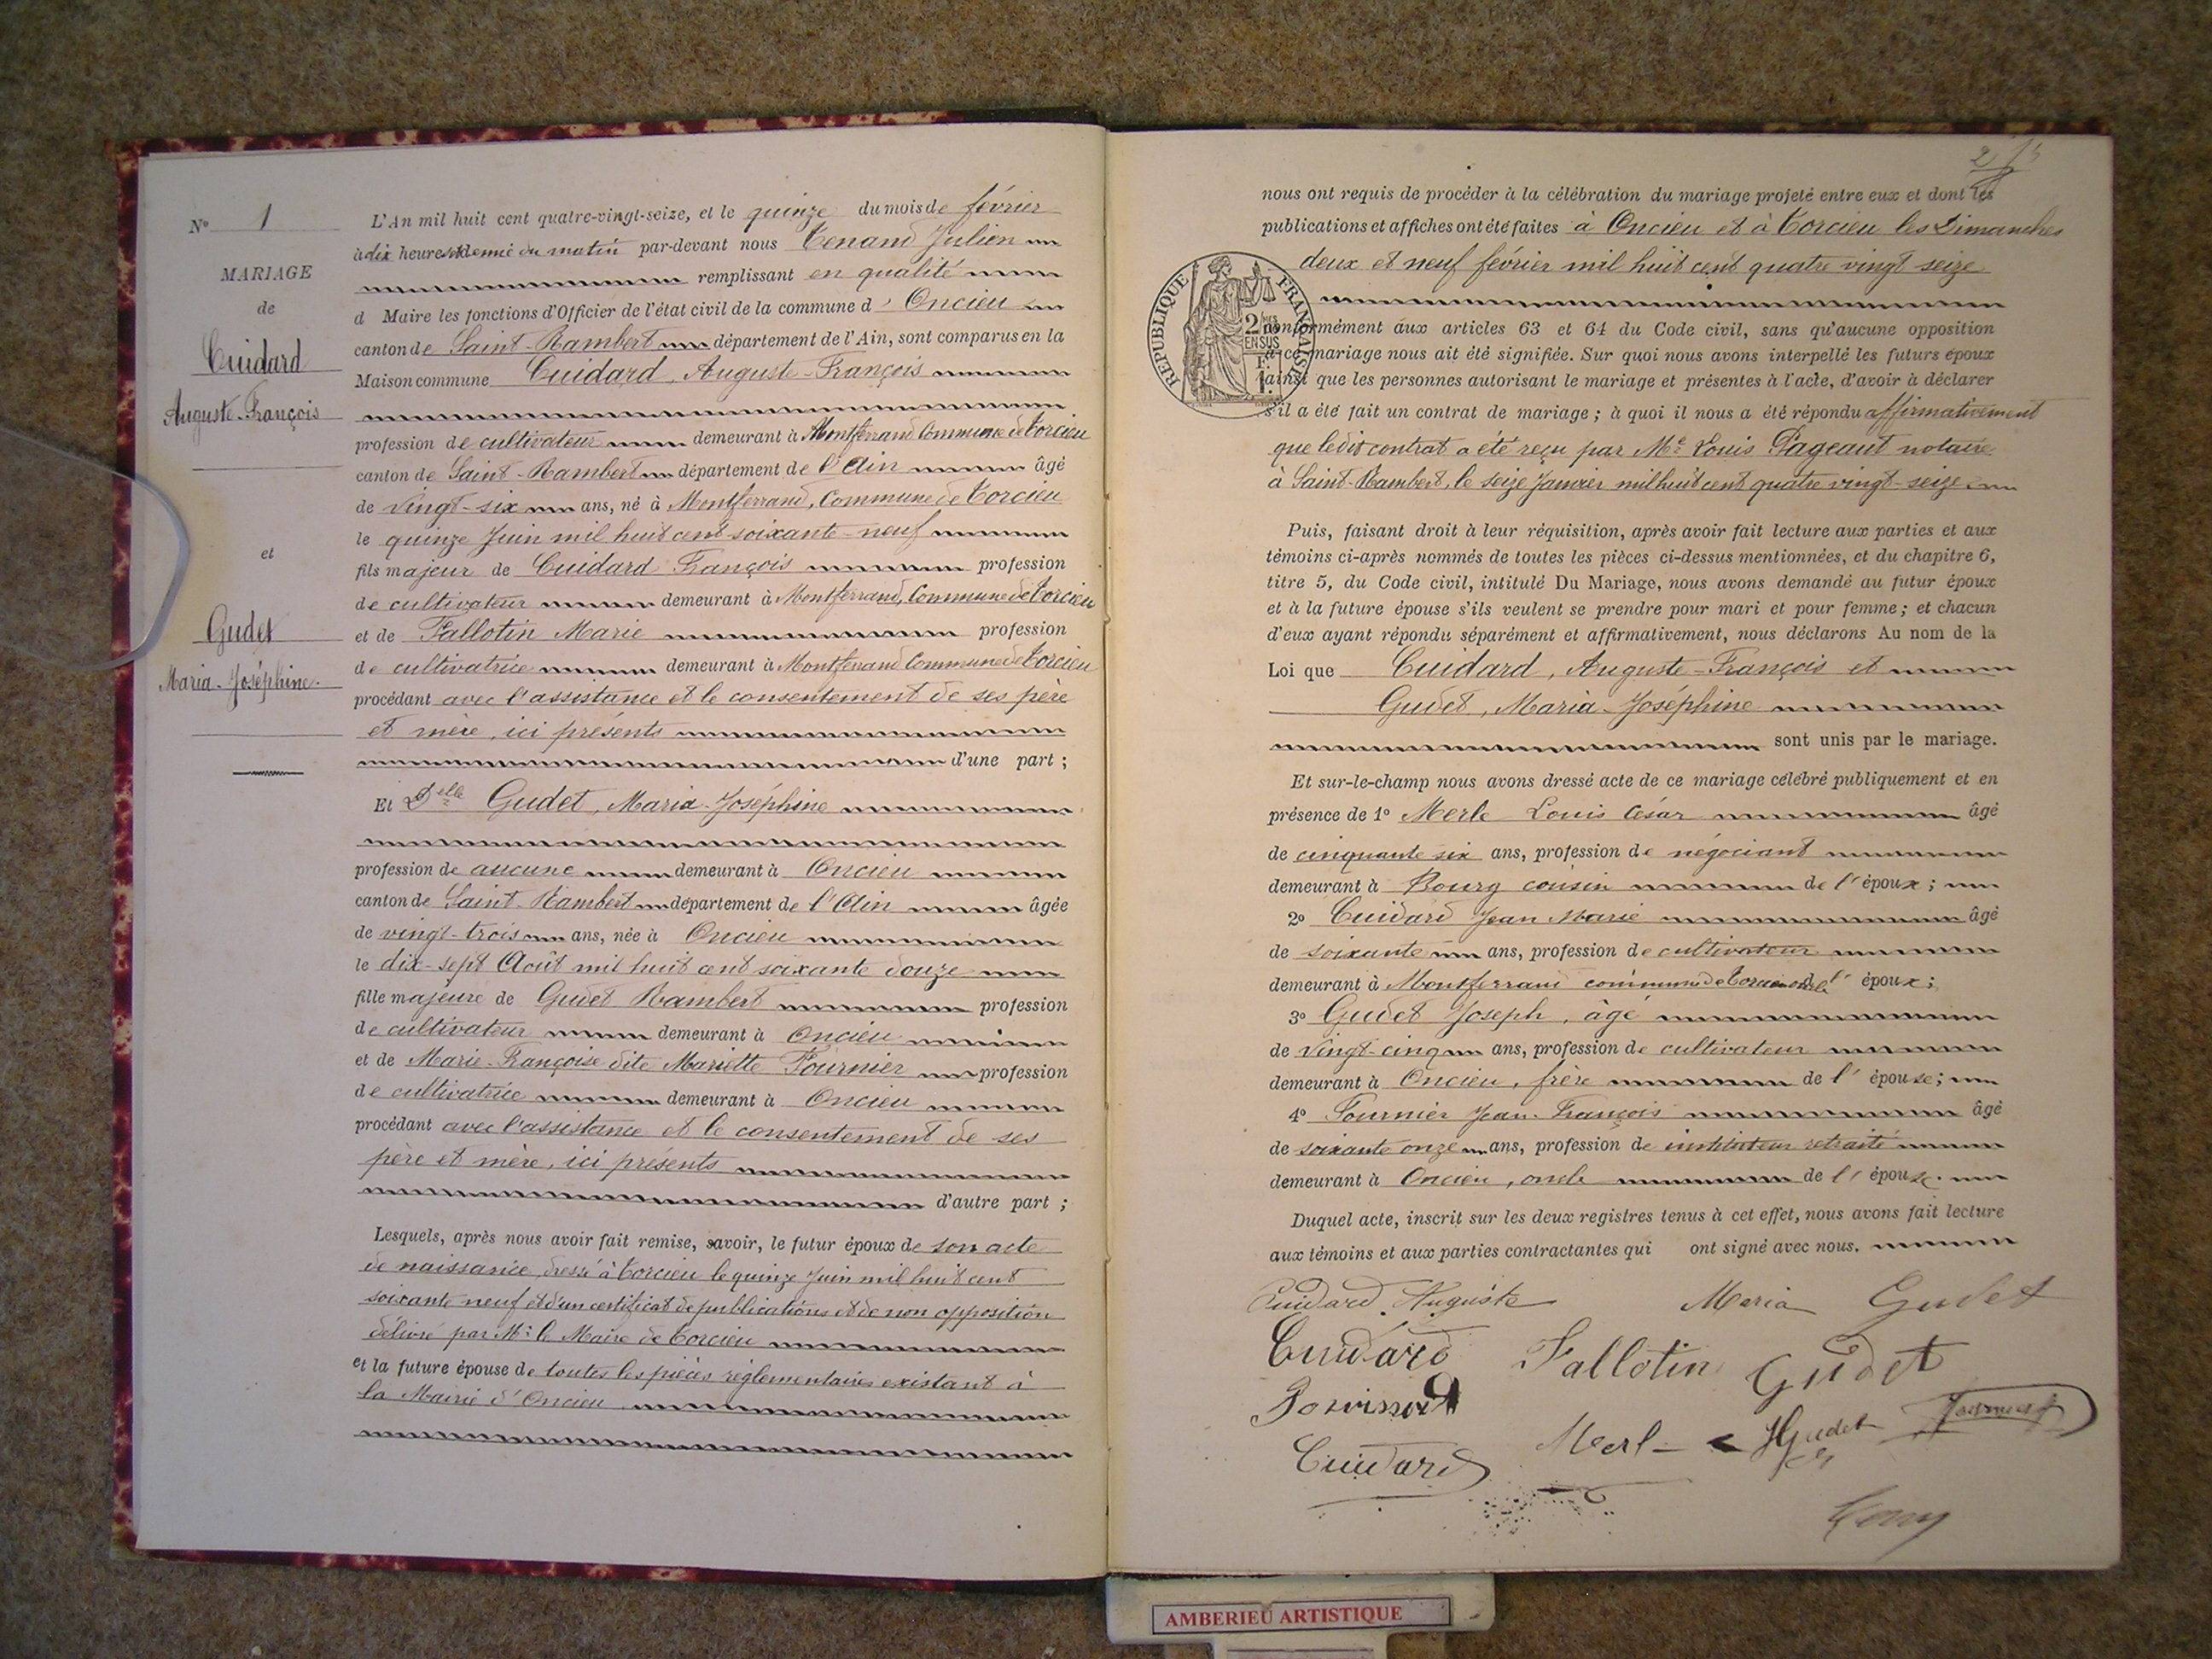 N° 1
MARIAGE
de
Cuidard
Auguste-François
et
Gudet
Maria-Joséphine.
L'An mil huit cent quatre-vingt-seize, et le quinze du mois de février
à dix heures et demie du matin par-devant nous Tenand Julien
remplissant en qualité
d Maire les fonctions d'Officier de l'état civil de la commune d' Oncieu
canton de Saint-Rambert département de l'Ain, sont comparus en la
Maison commune Cuidard, Auguste-François
profession de cultivateur demeurant à Montferrand Commune de Torcieu
canton de Saint-Rambert département de l'Ain âgé
de vingt-six ans, né à Montferrand, Commune de Torcieu
le quinze Juin mil huit cent soixante-neuf
fils majeur de Cuidard François profession
de cultivateur demeurant à Montferrand, Commune de Torcieu
et de Fallotin Marie profession
de cultivatrice demeurant à Montferrand Commune de Torcieu
procédant avec l'assistance et le consentement de ses père
et mère, ici présents
d'une part ;
Et Delle Gudet, Maria-Joséphine
profession de aucune demeurant à Oncieu
canton de Saint-Rambert département de l'Ain âgée
de vingt-trois ans, née à Oncieu
le dix-sept Août mil huit cent soixante douze
fille majeure de Gudet Rambert profession
de cultivateur demeurant à Oncieu
et de Marie-Françoise dite Mariette Fournier profession
de cultivatrice demeurant à Oncieu
procédant avec l'assistance et le consentement de ses
père et mère, ici présents
d'autre part ;
Lesquels, après nous avoir fait remise, savoir, le futur époux de son acte
de naissance, dressé à Torcieu le quinze Juin mil huit cent
soixante neuf et d'un certificat de publications et de non opposition
délivré par Mr le Maire de Torcieu
et la future épouse de toutes les pièces réglementaires existant à
la Mairie d'Oncieu
nous ont requis de procéder à la célébration du mariage projeté entre eux et dont les
publications et affiches ont été faites à Oncieu et à Torcieu les Dimanches
deux et neuf février mil huit cent quatre vingt seize
REPUBLIQUE FRANÇAISE
conformément aux articles 63 et 64 du Code civil, sans qu'aucune opposition
à ce mariage nous ait été signifiée. Sur quoi nous avons interpellé les futurs époux
ainsi que les personnes autorisant le mariage et présentes à l'acte, d'avoir à déclarer
s'il a été fait un contrat de mariage ; à quoi il nous a été répondu affirmativement
que ledit contrat a été reçu par Me Louis Pageaut notaire
à Saint-Rambert, le seize Janvier mil huit cent quatre vingt-seize
Puis, faisant droit à leur réquisition, après avoir fait lecture aux parties et aux
témoins ci-après nommés de toutes les pièces ci-dessus mentionnées, et du chapitre 6,
titre 5, du Code civil, intitulé Du Mariage, nous avons demandé au futur époux
et à la future épouse s'ils veulent se prendre pour mari et pour femme ; et chacun
d'eux ayant répondu séparément et affirmativement, nous déclarons Au nom de la
Loi que Cuidard, Auguste-François et
Gudet, Maria-Joséphine
sont unis par le mariage.
Et sur-le-champ nous avons dressé acte de ce mariage célébré publiquement et en
présence de 1° Merle Louis César âgé
de cinquante six ans, profession de négociant
demeurant à Bourg cousin de l'époux ;
2° Cuidard Jean Marie âgé
de soixante ans, profession de cultivateur
demeurant à Montferrand commune de Torcieu oncle de l'époux ;
3° Gudet Joseph, âgé
de vingt-cinq ans, profession de cultivateur
demeurant à Oncieu, frère de l'épouse ;
4° Fournier Jean-François âgé
de soixante onze ans, profession de instituteur retraité
demeurant à Oncieu, oncle de l'épouse.
Duquel acte, inscrit sur les deux registres tenus à cet effet, nous avons fait lecture
aux témoins et aux parties contractantes qui ont signé avec nous.
Cuidard Auguste Maria Gudet
Cuidard Fallotin Gudet
Merle JGudet
Cuidard
AMBERIEU ARTISTIQUE